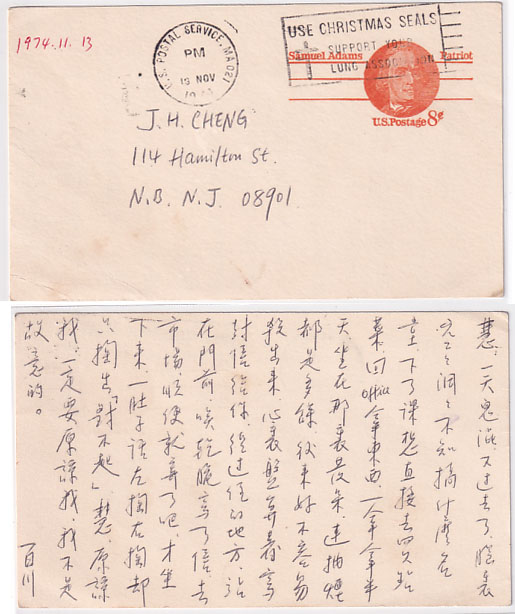 1974.11.13
U.S. POSTAL SERVICE, MA 021
PM
13 NOV
USE CHRISTMAS SEALS
SUPPORT YOUR
LUNG ASSOCIATION
Samuel Adams Patriot
U.S. Postage 8¢
J. H. CHENG
114 Hamilton St.
N.B. N.J. 08901
慧:一天鬼混又过去了,腦裏
空空洞洞不知搞什麼名
堂下了課想直接去
菜,回office拿東西,一拿拿半
天坐在那裏發呆,連抽煙
都是多餘,後來好不容易
殺出來,心裏盤算著寫
封信給你,經过住的地方,站
在門前,唉乾脆寫了信去
市場順便就寄了吧,才坐
下來,一肚子話左掏右掏却
只掏出「對不起」慧原諒
我,一定要原諒我,我不是
故意的。
百川